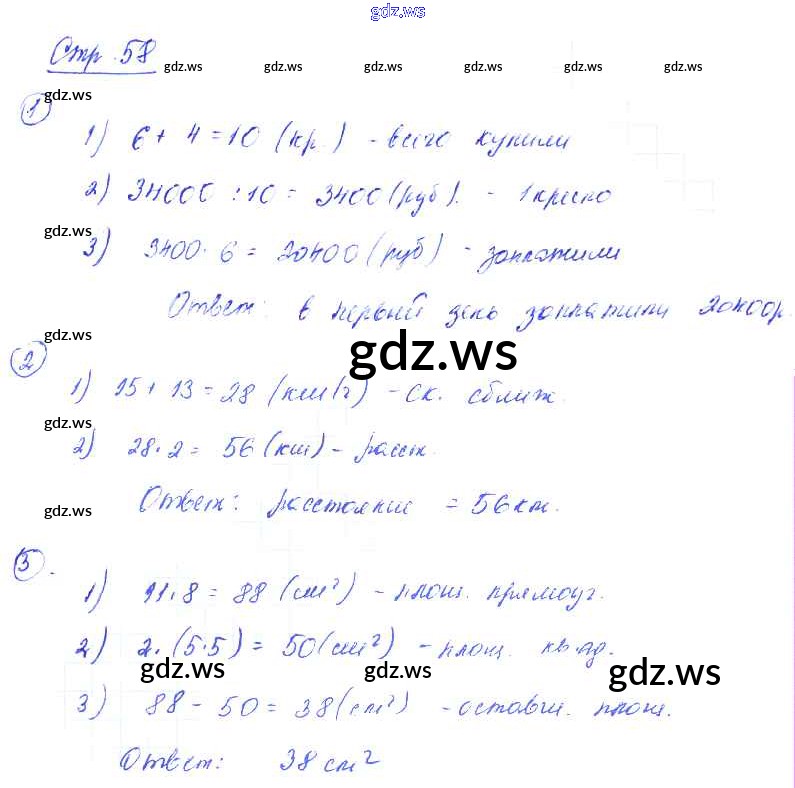 gdz.ws
Стр. 58
gdz.ws gdz.ws gdz.ws gdz.ws gdz.ws gdz.ws
gdz.ws
1
1) 6 + 4 = 10 (кр.) - всего купили
2) 34000 : 10 = 3400 (руб). - 1 кресло
gdz.ws
3) 3400 · 6 = 20400 (руб) - заплатили
Ответ: в первый день заплатили 20400р.
gdz.ws
gdz.ws
2
1) 15 + 13 = 28 (км/ч) - ск. сближ.
gdz.ws
2) 28 · 2 = 56 (км) - расст.
Ответ: расстояние = 56 км.
gdz.ws
3
1) 11 · 8 = 88 (см²) - площ. прямоуг.
2) 2 · (5·5) = 50 (см²) - площ. кв.ад.
gdz.ws gdz.ws gdz.ws
3) 88 - 50 = 38 (см²) - оставш. площ.
Ответ: 38 см²